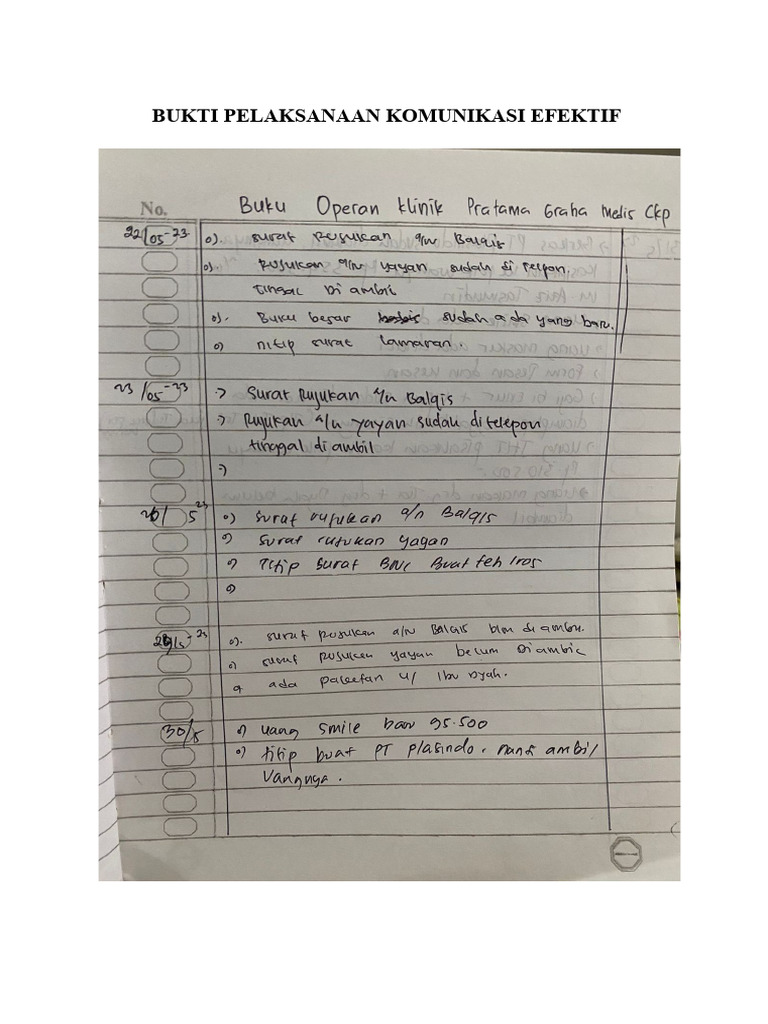 BUKTI PELAKSANAAN KOMUNIKASI EFEKTIF
No. Buku Operan Klinik Pratama Graha Medis Ckp
22/05-23 o). Surat Rujukan a/n Balqis
o). Rujukan a/n yayan sudah di telpon.
tinggal Di ambil
o). Buku besar sudah ada yang baru.
o) nitip surat lamaran.
23/05-23 :) Surat Rujukan a/n Balqis
:) Rujukan a/n yayan sudah ditelepon
tinggal di ambil
:)
26/5 23 o) Surat rujukan a/n Balqis
o) Surat rujukan yayan
o) Titip Surat Buat teh Iros
o)
29/5-23 o). surat rujukan a/n Balqis blm di ambil.
o) surat rujukan yayan belum Di ambil
o) ada paketan u/ Ibu Dyah.
30/5 o) uang smile baru 95.500
o) titip buat PT plasindo. nanti ambil
Uangnya.